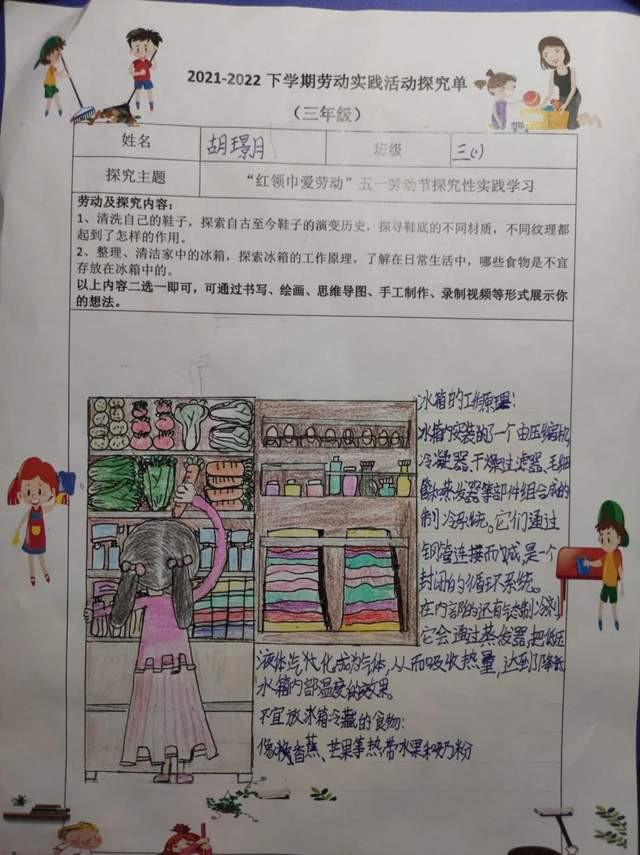 2021-2022 下学期劳动实践活动探究单
（三年级）
姓名 胡璟月 班级 三(1)
探究主题 “红领巾爱劳动”五一劳动节探究性实践学习
劳动及探究内容：
1、清洗自己的鞋子，探索自古至今鞋子的演变历史，探寻鞋底的不同材质，不同纹理都
起到了怎样的作用。
2、整理、清洁家中的冰箱，探索冰箱的工作原理，了解在日常生活中，哪些食物是不宜
存放在冰箱中的。
以上内容二选一即可，可通过书写、绘画、思维导图、手工制作、录制视频等形式展示你
的想法。
冰箱的工作原理：
冰箱内安装的了一个由压缩机,
冷凝器、干燥过滤器、毛细
蒸发器等部件组合成的
制冷系统。它们通过
铜管连接而成,是一个
封闭的循环系统。
在内部的还有气态制冷剂,
它会通过蒸发器,把低压
液体汽化成为气体,从而吸收热量,达到了降低
冰箱内部温度的效果。
不宜放冰箱冷藏的食物:
像香蕉、芒果等热带水果和奶粉